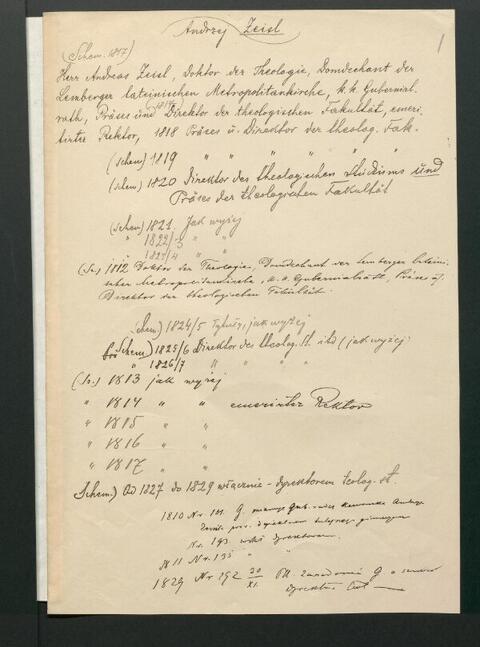 Andrzej Zeisl
1
(Schem. 1817)
Herr Andreas Zeisl, Doktor der Theologie, Domdechant der
Lemberger lateinischen Metropolitankirche, k. k. Gubernial-
rath, Präses und Direktor der theologischen Fakultät, emeri-
tirter Rektor, 1818 Präses u. Direktor der theolog. Fak.
(Schem) 1819 " " " " "
(Schem) 1820 Direktor des theologischen Studiums und
Präses der theologischen Fakultät
(Schem) 1821. Jak wyżej
" 1822/3 " "
" 1823/4 " "
(Sz.) 1812 Doktor der Theologie, Domdechant der Lemberger lateini-
scher Metropolitankirche, k. k. Gubernialrath, Präses u.
Direktor der theologischen Fakultät.
Schem) 1824/5 Tytuły, jak wyżej
Schem) 1825/6 Direktor des theolog. St. itd (jak wyżej)
" 1826/7 " " "
(Sz.) 1813 jak wyżej
" 1814 " " emeritirter Rektor
" 1815 " "
" 1816 " "
" 1817 " "
Schem.) Od 1827 do 1829 włącznie - dyrektorem teolog. st.
1810 Nr. 101. G.
Nr. 193 dyrektorem.
1811 Nr. 135 " "
1829 Nr 292 30/XI. G o
dyrektor